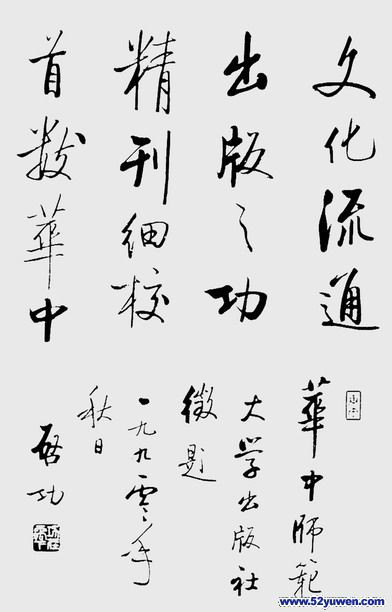 文化流通
出版之功
精刊细校
首数華中
華中師範
大学出版社
徵题
一九九零年
秋日
啓功
www.52yuwen.com